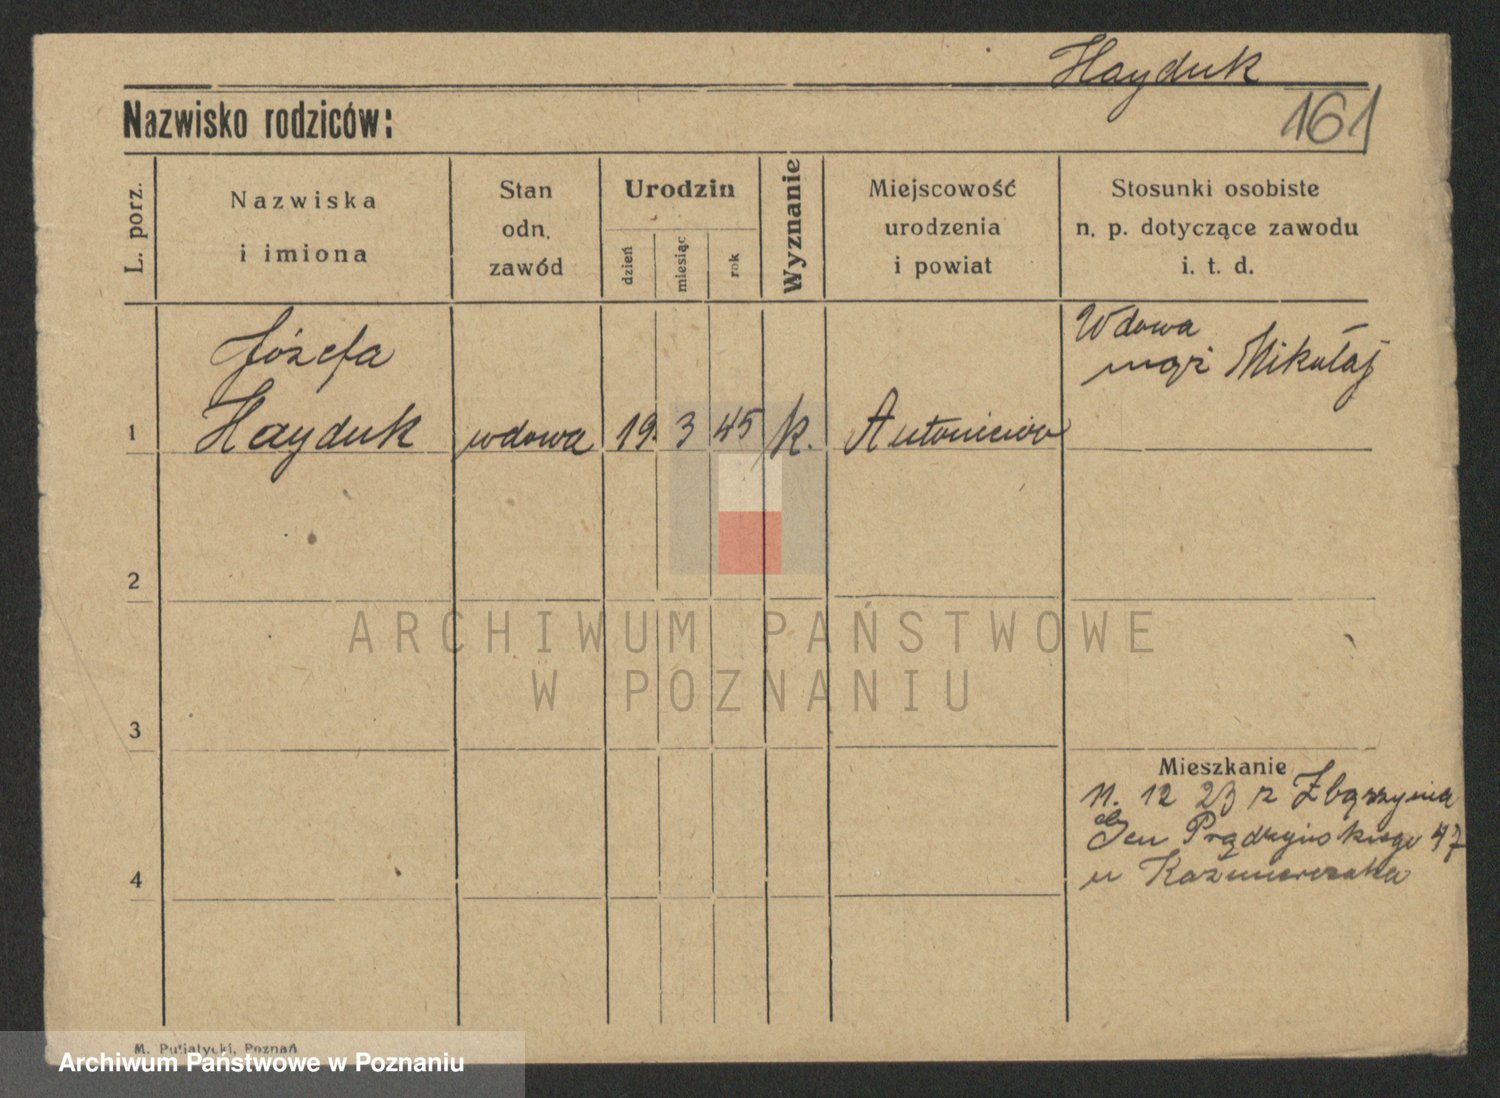 Hayduk
161
Nazwisko rodziców:
L. porz.
Nazwiska
i imiona
Stan
odn.
zawód
Urodzin
dzień
miesiąc
rok
Wyznanie
Miejscowość
urodzenia
i powiat
Stosunki osobiste
n. p. dotyczące zawodu
i. t. d.
Józefa
Wdowa
mąż Mikołaj
1 Hayduk wdowa 19. 3 45 k. Antoniew
2
ARCHIWUM PAŃSTWOWE
W POZNANIU
3
Mieszkanie
11. 12 23 z Zbąszynia
Gen Prądzyńskiego 47
u Kaźmierczaka
4
M. Putiatycki, Poznań
Archiwum Państwowe w Poznaniu